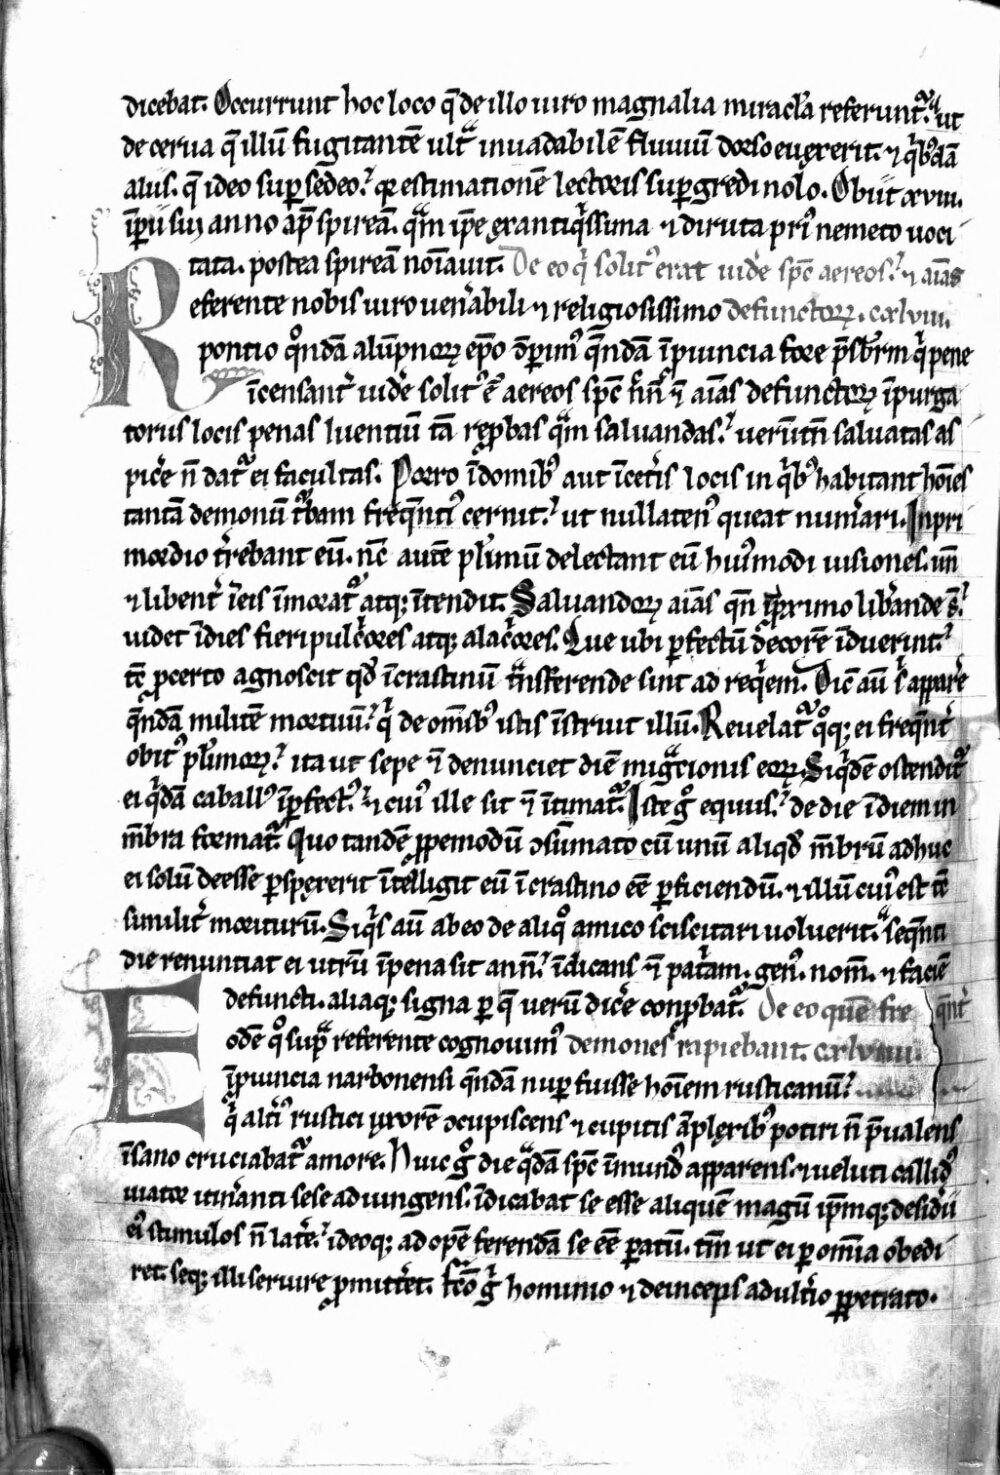 dicebat. Occurrunt hoc loco q̄ de illo uiro magnalia miracl̓a referunt᷑. ut
de cerua q̄ illū fugitantē ultᵃ inuadabilē fluuiū dorso euexerit. ⁊ qⁱbꝰdā
aliis. q̄ ideo suꝑsedeo. qꝛ estimationē lectoris suꝑgredi nolo. Obiit xviii.
īꝑii sui anno apᵈ spireā. qᵃm ip̄e ex antiqⁱssima ⁊ diruta priꝰ nemeto uoci
tata. postea spireā noīauit. De eo qⁱ solitꝰ erat uid̓e sp̄c aereos. ⁊ aīas
Referente nobis uiro uen̓abili ⁊ religiosissimo defunctoꝝ. cxlviii.
pontio qᵒndā alūpnoꝝ ep̄o ꝯꝑimꝰ qᵉndā ī ꝓuincia fore p̄sbr̄m qⁱ pene
īcensant᷑ uid̓e solitꝰ ē aereos sp̄c ⁊ aīas defunctoꝝ ī purga
toriis locis penas luentiū tā reꝓbas qᵃm saluandas. uerūtn̄ saluatas as
pic̓e n̄ dat᷑ ei facultas. Porro ī domibꝰ aut ī cet̓is locis in qⁱbꝰ habitant hoīes
tantā demonū tᵘbam freqᵉntiꝰ cernit. ut nullatenꝰ queat num̓ari. In pri
mordio t̓rebant eū. nc̄ autē pl̓imū delectant eū huiꝰmodi uisiones. un̄
⁊ libent̓ ī eis īmorat᷑ atq; ītendit. Saluandoꝝ aīas qn̄ ī ꝓximo lib̓ande s̄.
uidet ī dies fieri pulcͥores atq; alacͥores. Que ubi ꝑfectū decorē īduerint.
tē ꝓcerto agnoscit qᵈ ī crastinū tᵃnsferende sint ad reqⁱem. Dic̄ aū sⁱ appare̓
qᵉndā militē mortuū. qⁱ de omībꝰ istis īstruit illū. Reuelat᷑ qᵒq; ei freqᵉnt̓
obitꝰ pl̓imoꝝ. ita ut sepe ⁊ denunciet diē migᵃtionis eoꝝ. Siqⁱdē ostendit᷑
ei qⁱdā caballꝰ īꝑfectꝰ. ⁊ cuiꝰ ille sit ⁊ ītimat᷑. Iste gᵒ equus. de die ī diem in
m̄bra format᷑. Quo tandē ꝓpemodū ꝯsūmato cū unū aliqᵈ m̄brū adhuc
ei solū deesse ꝑspexerit ītelligit eū ī crastino eē ꝑficiendū. ⁊ illū cuiꝰ est tē
similit̓ moriturū. Siqⁱs aū ab eo de aliqᵒ amico sciscitari uoluerit. seqᵉnti
die renuntiat ei utrū ī pena sit an n̄. īdicans ⁊ patͥam. genꝰ. nom̄. ⁊ faciē
defuncti. aliaq; signa ꝑ q̄ uerū dic̓e conꝓbat᷑. De eo quē fre qᵉnt̓
Eodē qᵒ supᵃ referente cognouimꝰ demones rapiebant. cxlviiii.
ī ꝓuincia narbonensi qᵉndā nuꝑ fuisse hoīem rusticanū.
qⁱ alt̓iꝰ rustici uxorē ꝯcupiscens ⁊ cupitis āplexibꝰ potiri n̄ p̄ualens
īsano cruciabat᷑ amore. Huic gᵒ die qᵃdā sp̄c īmundꝰ apparens. ⁊ ueluti callidꝰ
uiator itin̓anti sese adiungens. īdicabat se esse aliquē magū ip̄mq; desid̓ii
eiꝰ stimulos n̄ lat̓e. ideoq; ad opē ferendā se eē ꝑatū. tm̄ ut ei ꝑ om̄ia obedi
ret. seq; illi seruire ꝓmitt̓et. Fc̄o gᵒ hominio ⁊ deinceps adult̓io ꝑpetrato.